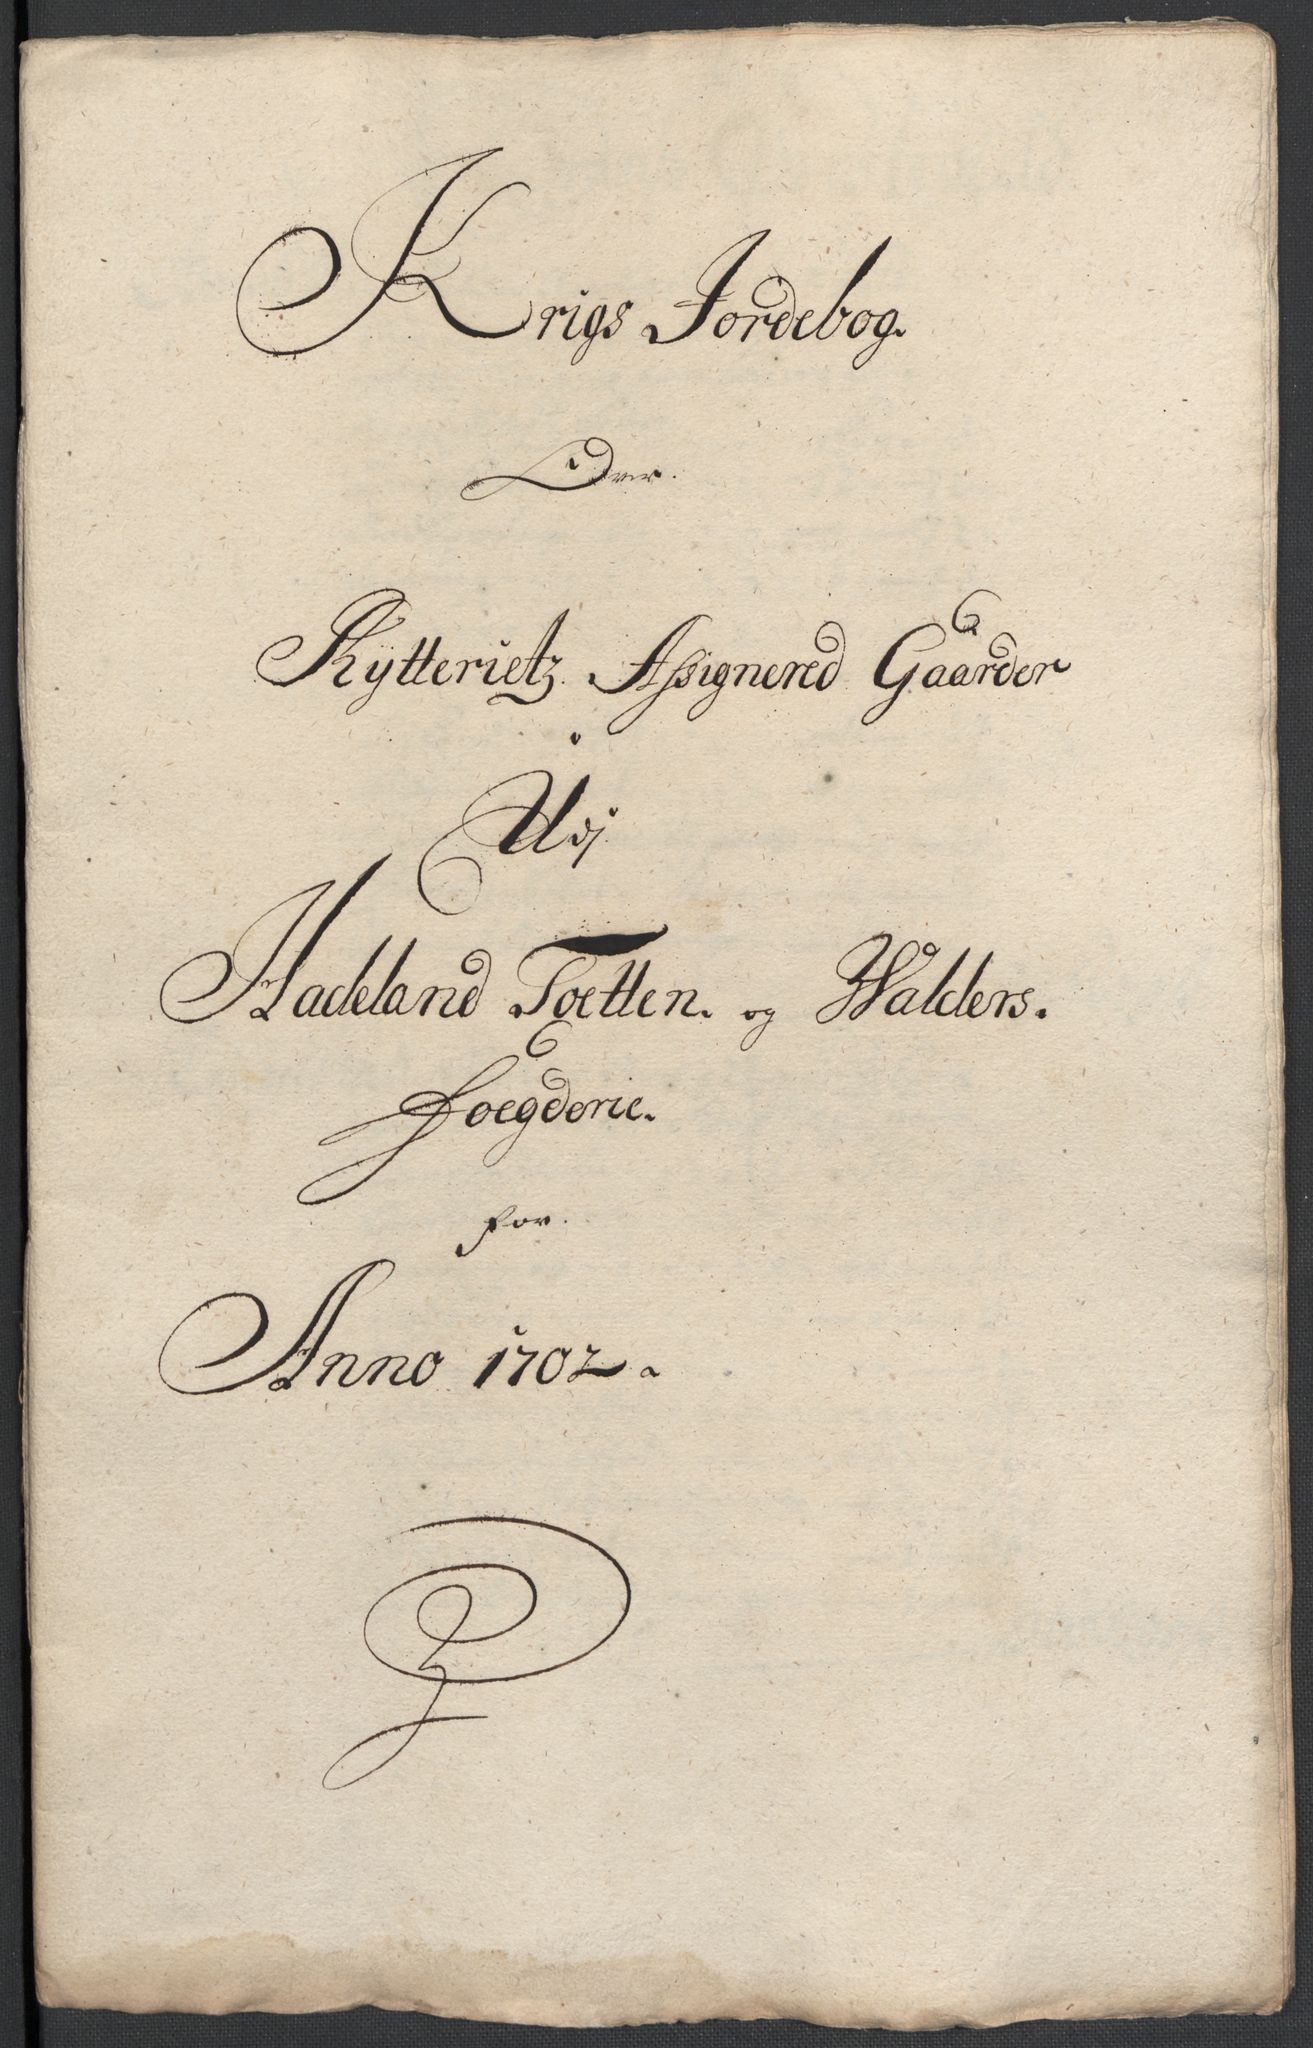 Krigs Jordebog.
Over.
Rytterietz Assignered Gaarder
Udj
Hadeland Toetten. og Walders.
Foegderie.
for.
Anno 1702.